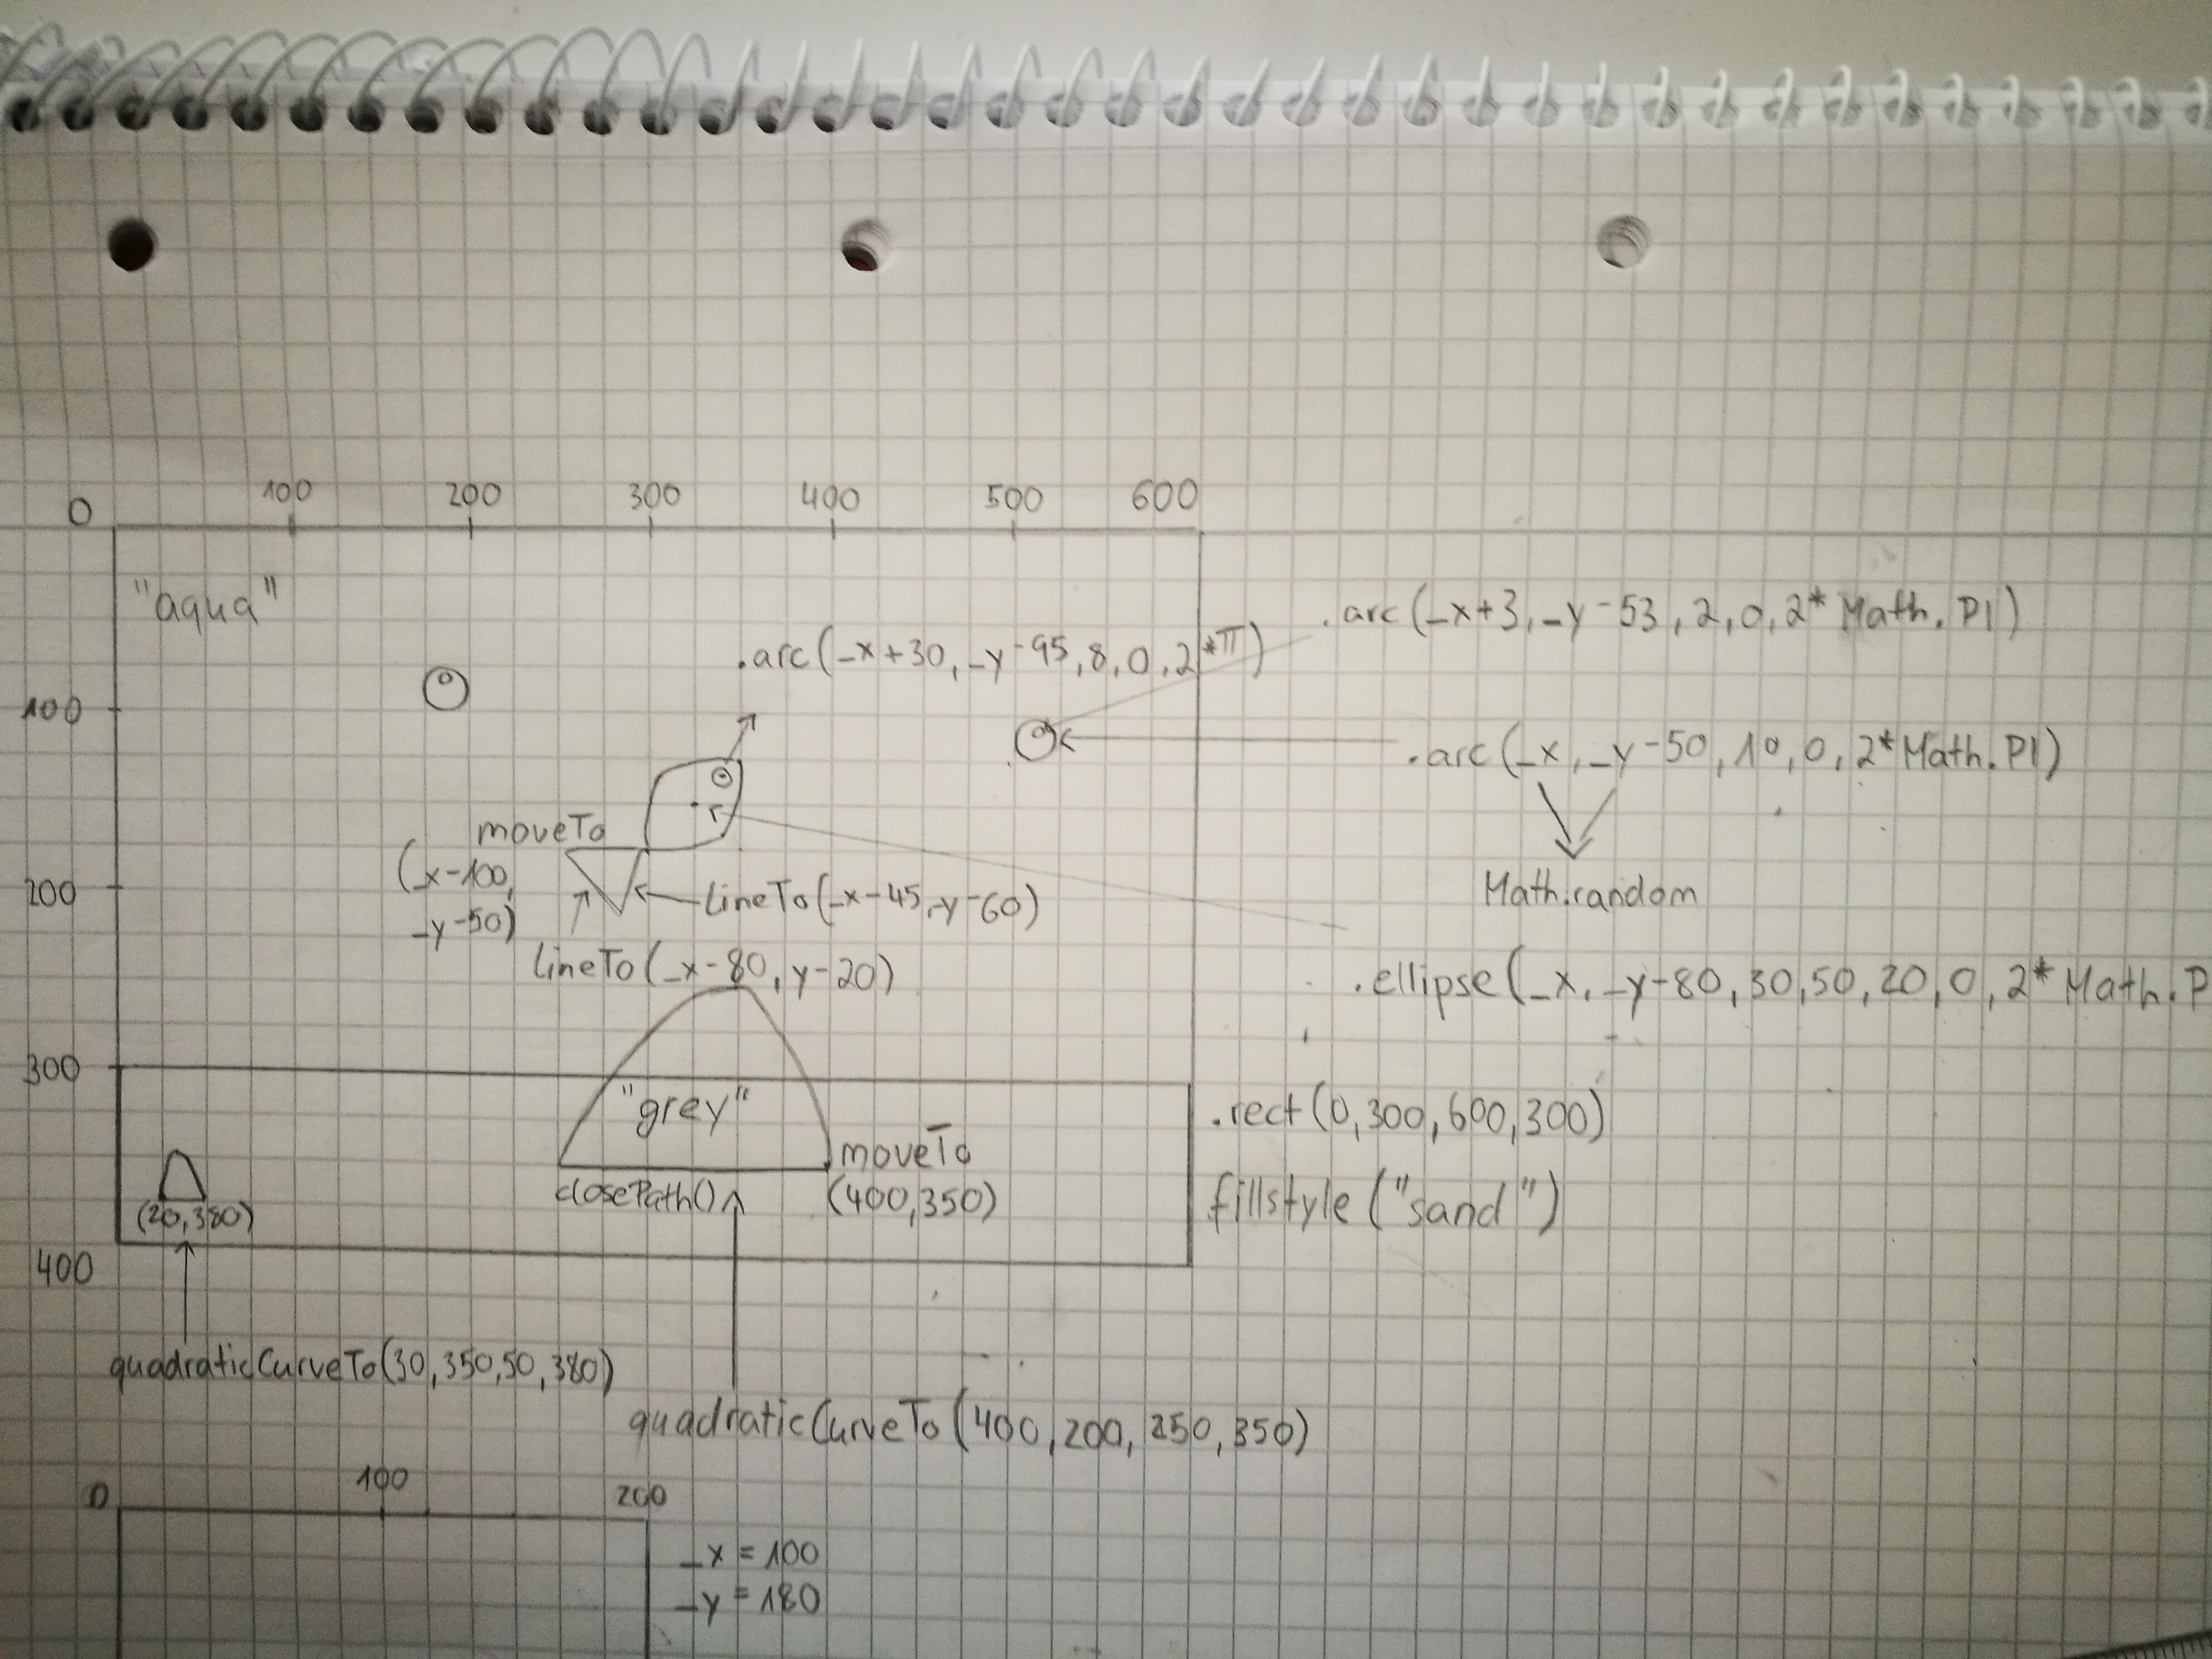 0 100 200 300 400 500 600
"aqua"
.arc(_x+3,_y-53,2,0,2*Math.PI)
.arc(_x+30,_y-95,8,0,2*π)
100
.arc(_x,_y-50,10,0,2*Math.PI)
moveTo
(_x-100,
_y-50)
200
Math.random
LineTo(_x-45,-y-60)
lineTo(_x-80,y-20)
.ellipse(_x,_y-80,30,50,20,0,2*Math.P
300
"grey"
.rect(0,300,600,300)
moveTo
(400,350)
closePath()
fillstyle("sand")
(20,380)
400
quadraticCurveTo(30,350,50,380)
quadraticCurveTo(400,200,250,350)
0 100 200
_x=100
_y=180